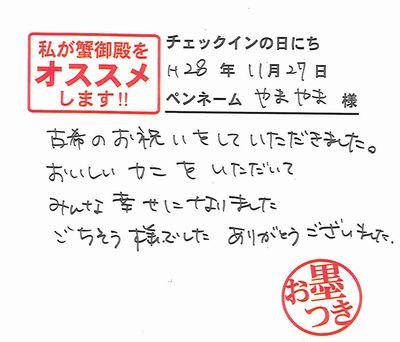 私が蟹御殿を
オススメ
します!!
チェックインの日にち
H28年 11月27日
ペンネーム やまやま 様
古希のお祝いをしていただきました。
おいしいカニをいただいて
みんな幸せになりました
ごちそう様でした ありがとうございました.
お墨つき